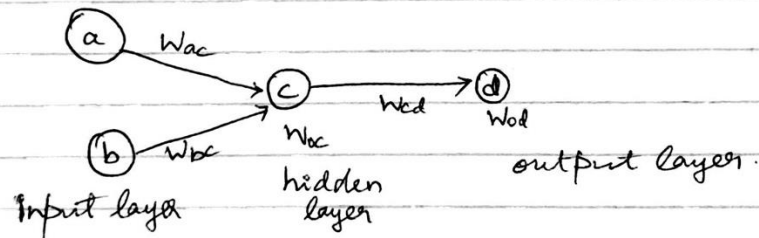 a
Wac
c
Wcd
d
b
Wbc
Woc
Wod
Input layer
hidden
layer
output layer.